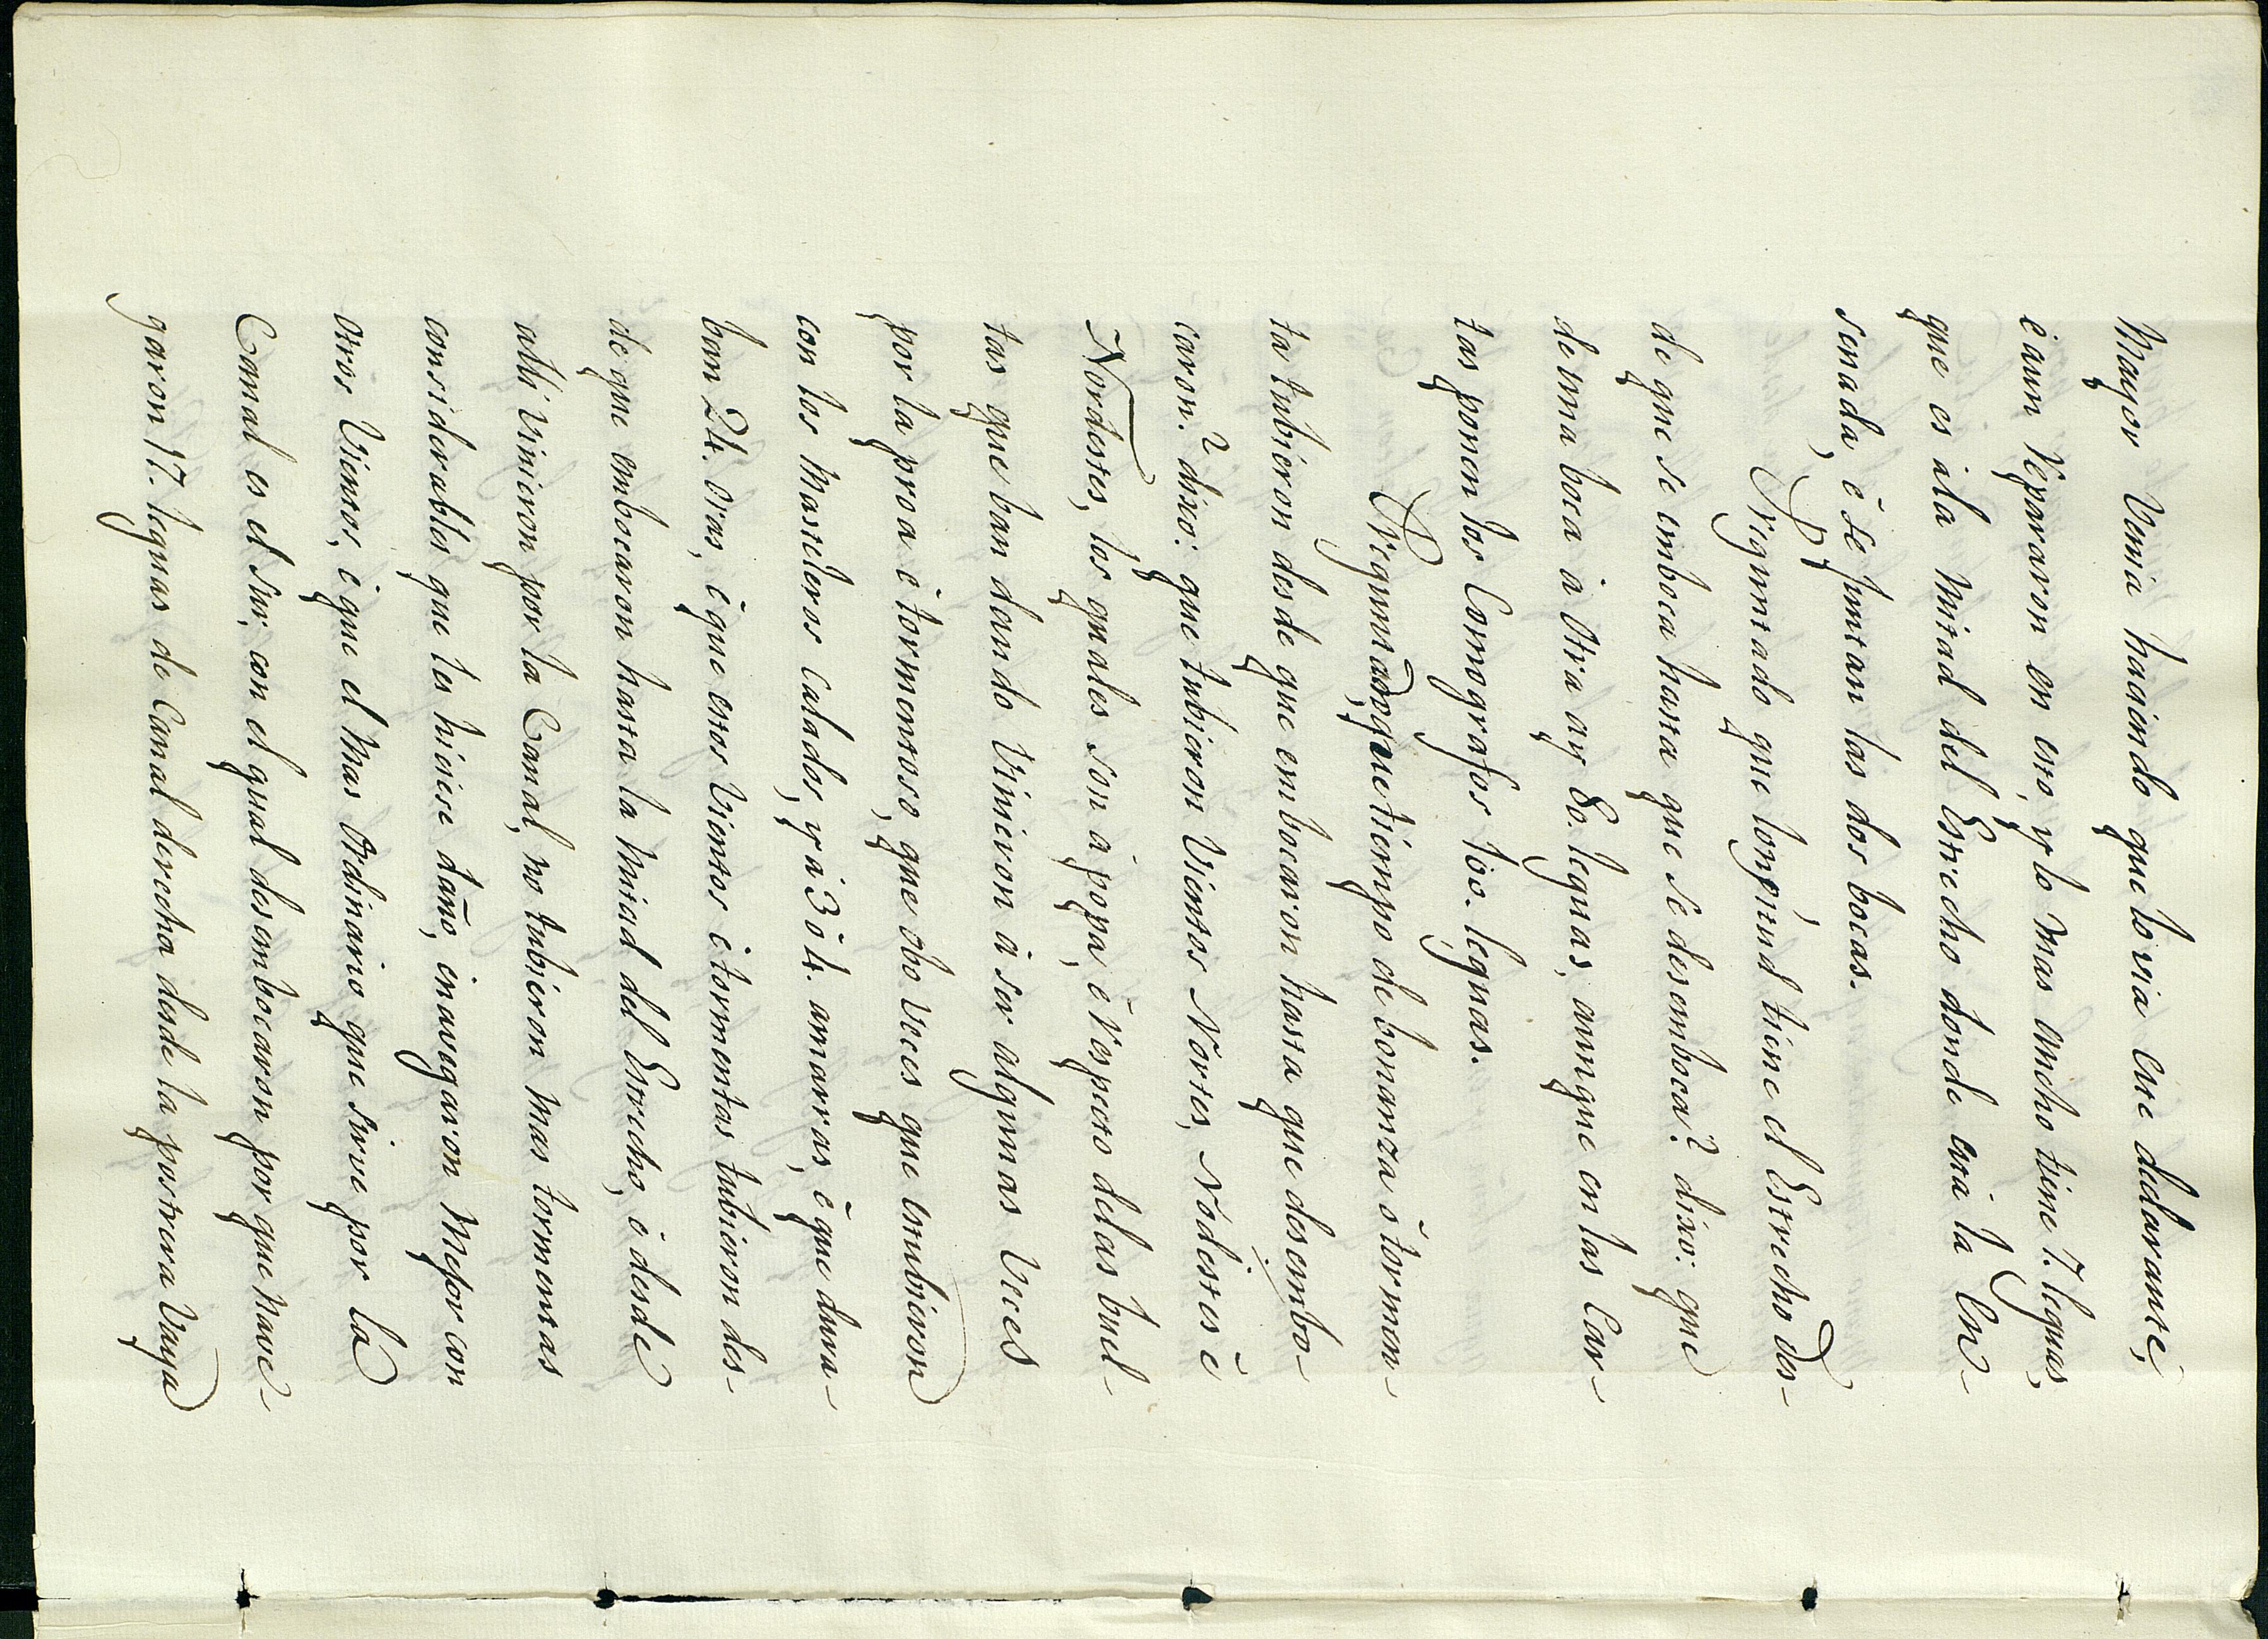 Mayor Venia haciendo que lo via este declarante,
è aun Repararon en esto, y lo mas ancho tiene 7. leguas,
que es ala mitad del Estrecho donde està la En-
senada, è se juntan las dos bocas.
Preguntado que longitud tiene el Estrecho des-
de que se emboca hasta que se desemboca? dixo: que
de una boca à otra ay 80. leguas, aunque en las Car-
tas ponen los Cosmografos 100. leguas.
Preguntado, que tiempo de bonanza ò tormen-
ta tubieron desde que embocaron hasta que desembo-
caron? dixo: que tubieron Vientos Nortes, Nodestes è
Nordestes, los quales son à popa, è Respecto delas buel-
tas que ban dando Vinieron à ser algunas Veces
por la proa è tormentoso, que obo Veces que estubieron
con los Masteleros calados, y à 3 ò 4. amarras, è que dura-
ban 24. oras, è que estos Vientos è tormentas tubieron des-
de que embocaron hasta la mitad del Estrecho, è desde
alli Vinieron por la Canal, no tubieron mas tormentas
considerables que les hiciese daño, enavegaron Mejor con
otros Vientos, è que el mas Ordinario que sirve por la
Canal es el Sur, con el qual desembocaron por que nave-
garon 17. leguas de Canal derecha desde la postrera Vuya